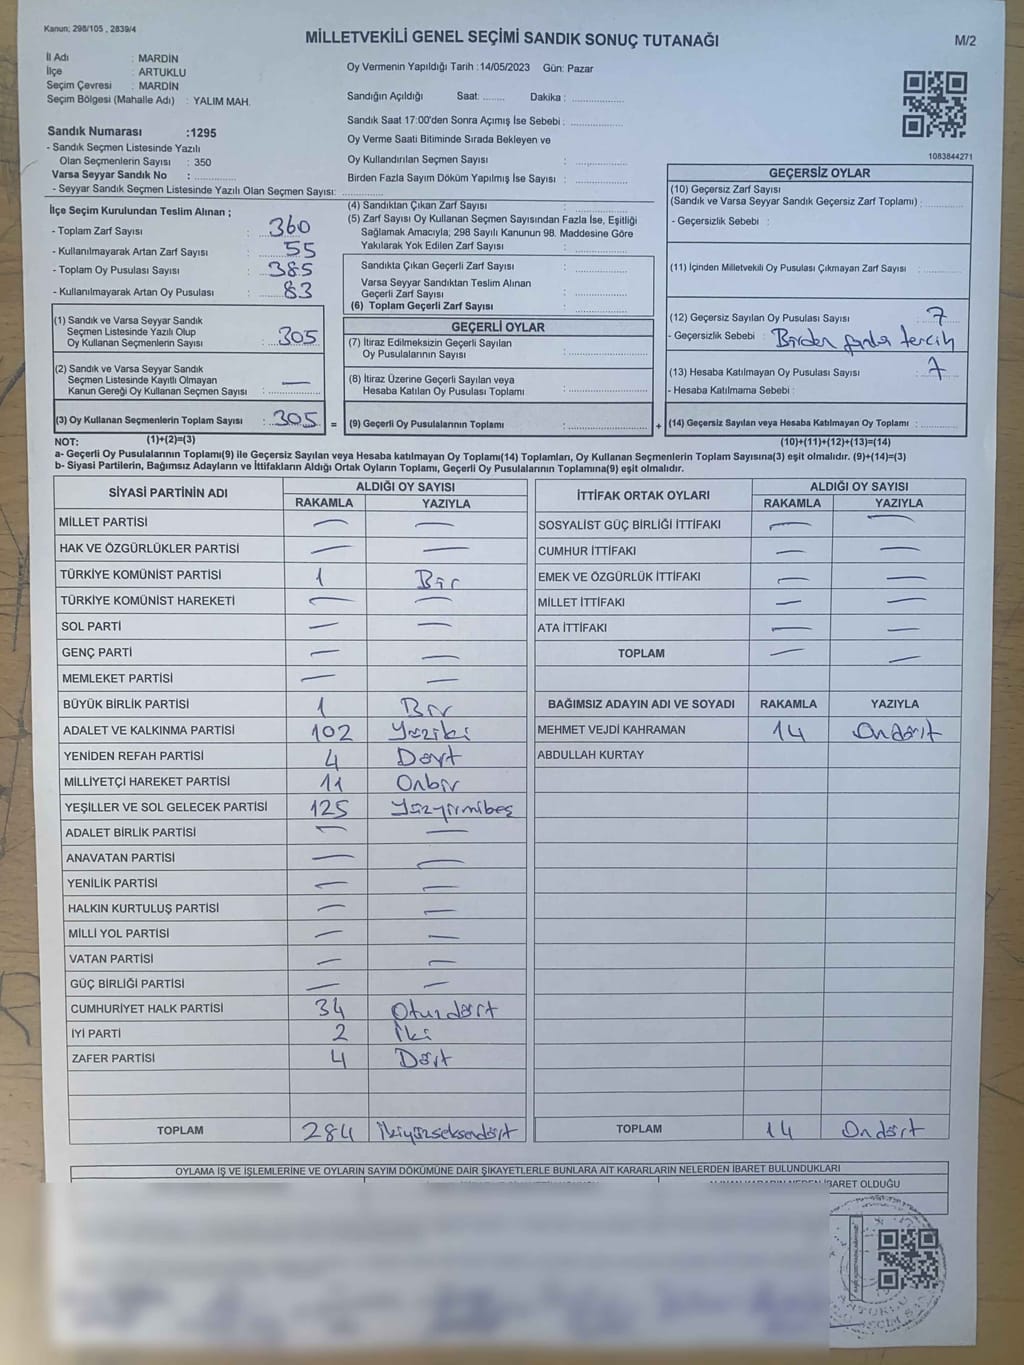 Kanun; 298/105 , 2839/4
MİLLETVEKİLİ GENEL SEÇİMİ SANDIK SONUÇ TUTANAĞI
M/2
İl Adı : MARDİN
İlçe : ARTUKLU
Seçim Çevresi : MARDİN
Seçim Bölgesi (Mahalle Adı) : YALIM MAH.
Sandık Numarası :1295
- Sandık Seçmen Listesinde Yazılı
Olan Seçmenlerin Sayısı : 350
Varsa Seyyar Sandık No : ..............
- Seyyar Sandık Seçmen Listesinde Yazılı Olan Seçmen Sayısı: ..............
Oy Vermenin Yapıldığı Tarih :14/05/2023 Gün: Pazar
Sandığın Açıldığı Saat: ....... Dakika : ................
Sandık Saat 17:00'den Sonra Açımış İse Sebebi : ................
Oy Verme Saati Bitiminde Sırada Bekleyen ve
Oy Kullandırılan Seçmen Sayısı : ................
Birden Fazla Sayım Döküm Yapılmış İse Sayısı : ................
1083844271
İlçe Seçim Kurulundan Teslim Alınan ;
- Toplam Zarf Sayısı : 360
- Kullanılmayarak Artan Zarf Sayısı : 55
- Toplam Oy Pusulası Sayısı : 385
- Kullanılmayarak Artan Oy Pusulası : 83
(1) Sandık ve Varsa Seyyar Sandık
Seçmen Listesinde Yazılı Olup
Oy Kullanan Seçmenlerin Sayısı : 305
(2) Sandık ve Varsa Seyyar Sandık
Seçmen Listesinde Kayıtlı Olmayan
Kanun Gereği Oy Kullanan Seçmen Sayısı : —
(3) Oy Kullanan Seçmenlerin Toplam Sayısı : 305
(1)+(2)=(3)
(4) Sandıktan Çıkan Zarf Sayısı : ................
(5) Zarf Sayısı Oy Kullanan Seçmen Sayısından Fazla İse, Eşitliği
Sağlamak Amacıyla; 298 Sayılı Kanunun 98. Maddesine Göre
Yakılarak Yok Edilen Zarf Sayısı : ................
Sandıkta Çıkan Geçerli Zarf Sayısı : ................
Varsa Seyyar Sandıktan Teslim Alınan
Geçerli Zarf Sayısı : ................
(6) Toplam Geçerli Zarf Sayısı : ................
GEÇERLİ OYLAR
(7) İtiraz Edilmeksizin Geçerli Sayılan
Oy Pusulalarının Sayısı : ................
(8) İtiraz Üzerine Geçerli Sayılan veya
Hesaba Katılan Oy Pusulası Toplamı : ................
= (9) Geçerli Oy Pusulalarının Toplamı : ................
GEÇERSİZ OYLAR
(10) Geçersiz Zarf Sayısı
(Sandık ve Varsa Seyyar Sandık Geçersiz Zarf Toplamı) : ...........
- Geçersizlik Sebebi :
(11) İçinden Milletvekili Oy Pusulası Çıkmayan Zarf Sayısı : ...........
(12) Geçersiz Sayılan Oy Pusulası Sayısı : 7
- Geçersizlik Sebebi : Birden fazla tercih
(13) Hesaba Katılmayan Oy Pusulası Sayısı : 7
- Hesaba Katılmama Sebebi :
+ (14) Geçersiz Sayılan veya Hesaba Katılmayan Oy Toplamı : ...........
(10)+(11)+(12)+(13)=(14)
NOT:
a- Geçerli Oy Pusulalarının Toplamı(9) ile Geçersiz Sayılan veya Hesaba katılmayan Oy Toplamı(14) Toplamları, Oy Kullanan Seçmenlerin Toplam Sayısına(3) eşit olmalıdır. (9)+(14)=(3)
b- Siyasi Partilerin, Bağımsız Adayların ve İttifakların Aldığı Ortak Oyların Toplamı, Geçerli Oy Pusulalarının Toplamına(9) eşit olmalıdır.
SİYASİ PARTİNİN ADI
ALDIĞI OY SAYISI
RAKAMLA YAZIYLA
MİLLET PARTİSİ — —
HAK VE ÖZGÜRLÜKLER PARTİSİ — —
TÜRKİYE KOMÜNİST PARTİSİ 1 Bir
TÜRKİYE KOMÜNİST HAREKETİ — —
SOL PARTİ — —
GENÇ PARTİ — —
MEMLEKET PARTİSİ — —
BÜYÜK BİRLİK PARTİSİ 1 Bir
ADALET VE KALKINMA PARTİSİ 102 Yüziki
YENİDEN REFAH PARTİSİ 4 Dört
MİLLİYETÇİ HAREKET PARTİSİ 11 Onbir
YEŞİLLER VE SOL GELECEK PARTİSİ 125 Yüzyirmibeş
ADALET BİRLİK PARTİSİ — —
ANAVATAN PARTİSİ — —
YENİLİK PARTİSİ — —
HALKIN KURTULUŞ PARTİSİ — —
MİLLİ YOL PARTİSİ — —
VATAN PARTİSİ — —
GÜÇ BİRLİĞİ PARTİSİ — —
CUMHURİYET HALK PARTİSİ 34 Otuzdört
İYİ PARTİ 2 İki
ZAFER PARTİSİ 4 Dört
TOPLAM 284 İkiyüzseksendört
İTTİFAK ORTAK OYLARI
ALDIĞI OY SAYISI
RAKAMLA YAZIYLA
SOSYALİST GÜÇ BİRLİĞİ İTTİFAKI — —
CUMHUR İTTİFAKI — —
EMEK VE ÖZGÜRLÜK İTTİFAKI — —
MİLLET İTTİFAKI — —
ATA İTTİFAKI — —
TOPLAM — —
BAĞIMSIZ ADAYIN ADI VE SOYADI RAKAMLA YAZIYLA
MEHMET VEJDİ KAHRAMAN 14 Ondört
ABDULLAH KURTAY
TOPLAM 14 Ondört
OYLAMA İŞ VE İŞLEMLERİNE VE OYLARIN SAYIM DÖKÜMÜNE DAİR ŞİKAYETLERLE BUNLARA AİT KARARLARIN NELERDEN İBARET BULUNDUKLARI
İBARET OLDUĞU